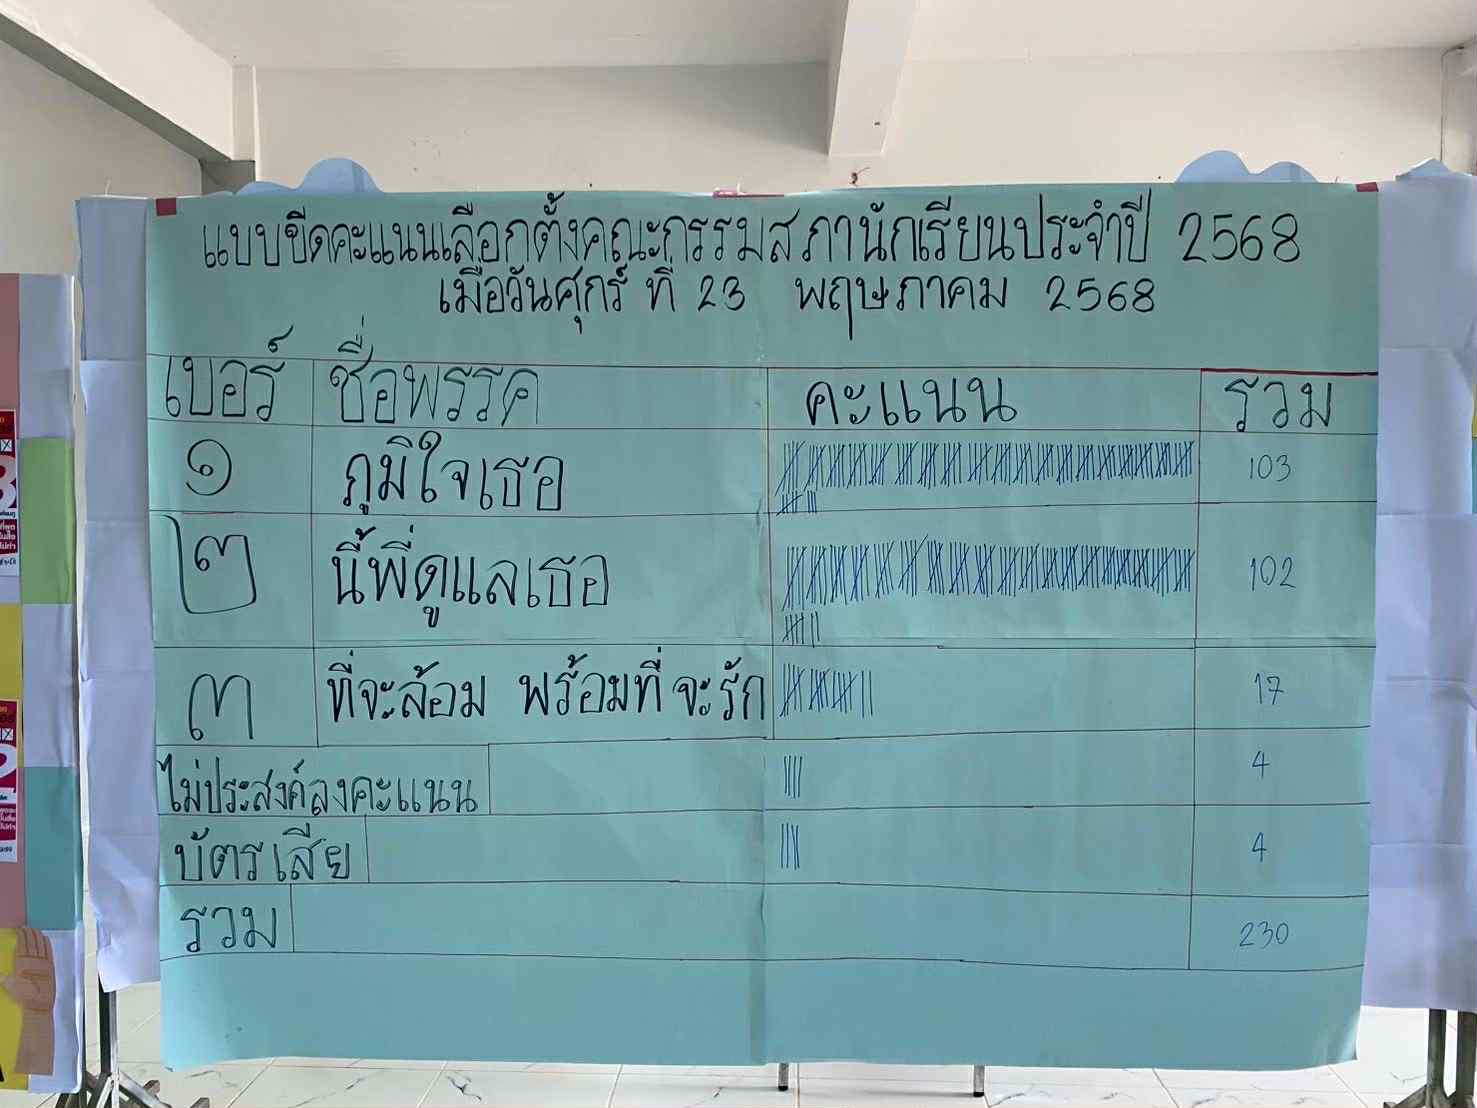 แบบขีดคะแนนเลือกตั้งคณะกรรมสภานักเรียนประจำปี 2568
เมื่อวันศุกร์ ที่ 23 พฤษภาคม 2568
เบอร์ ชื่อพรรค คะแนน รวม
๑ ภูมิใจเธอ 103
๒ นี้พี่ดูแลเธอ 102
๓ ที่จะล้อม พร้อมที่จะรัก 17
ไม่ประสงค์ลงคะแนน 4
บัตรเสีย 4
รวม 230